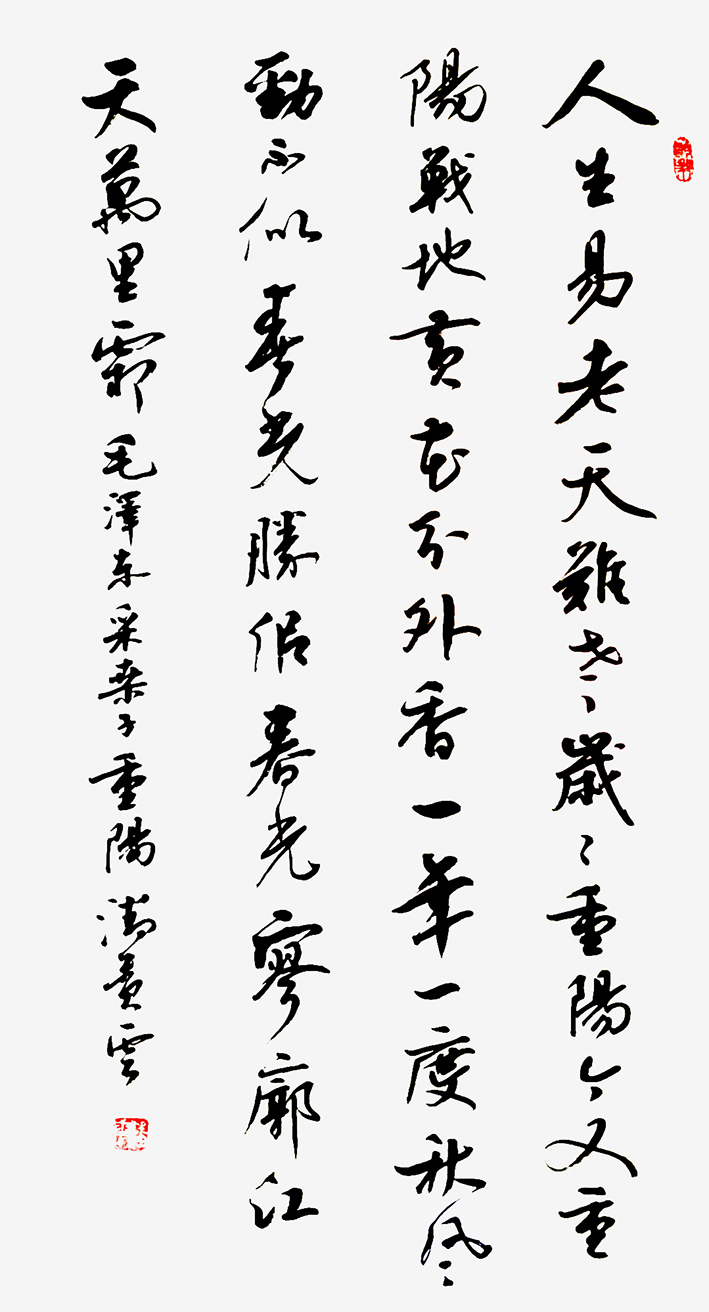 人生易老天難老歲〻重陽今又重
陽戰地黃花分外香一年一度秋風
勁不似春光勝似春光寥廓江
天萬里霜毛澤東采桑子重陽雲